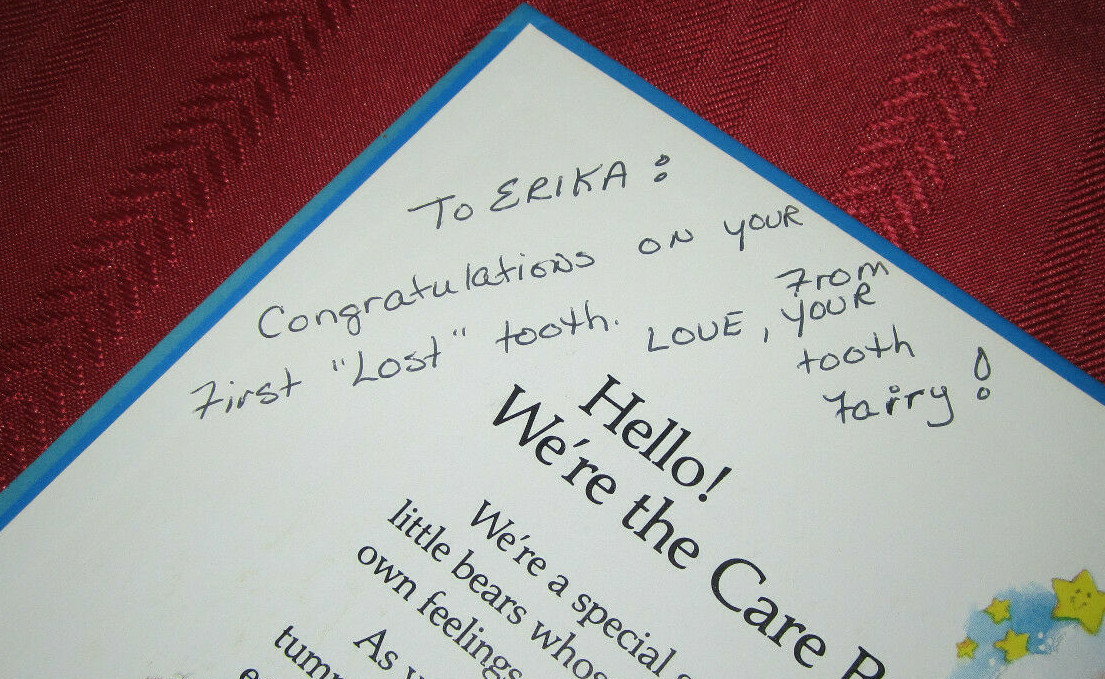 To ERIKA:
Congratulations on your
First "Lost" tooth. Love, From
your
tooth
Fairy!
Hello!
We're the Care B
We're a special
little bears whos
own feelings
As
tum